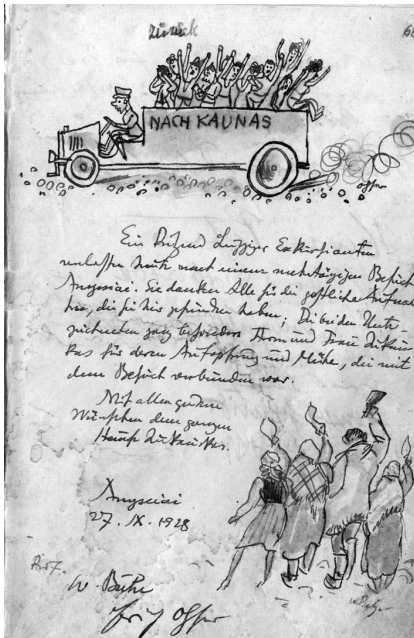 zurück
NACH KAUNAS
Ein Dutzend Leipziger Exkursianten
verlassen heute nach einem mehrtägigen Besuch
Anyksciai. Sie danken Alle für die gastliche Aufnah
me, die sie hier gefunden haben; die beiden Unter-
zeichneten ganz besonders Herrn und Frau
für deren Aufopferung und Mühe, die mit
dem Besuch verbunden war.
Mit allen guten
Wünschen dem ganzen
Hause
27. IX. 1928
W.